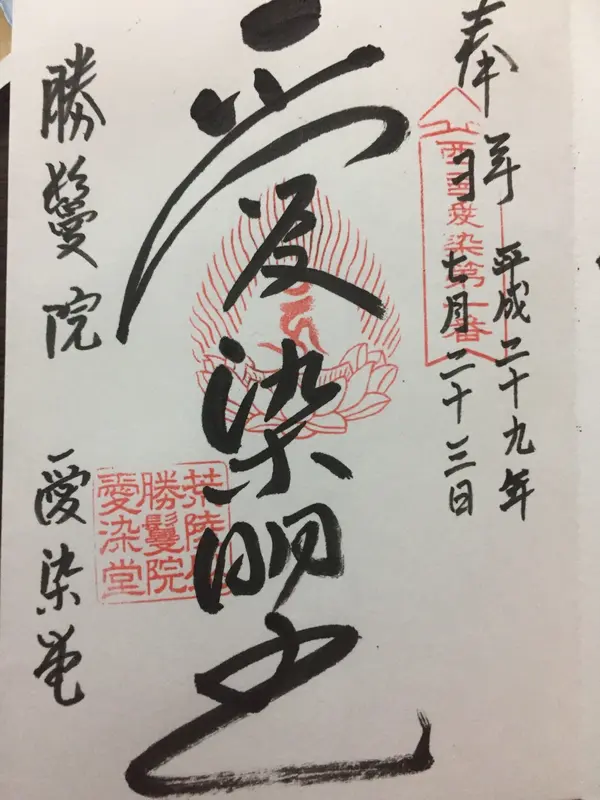 奉拝
平成二十九年
七月二十三日
西國愛染第一番
愛染明王
荒陵山
勝鬘院
愛染堂
勝鬘院 愛染堂